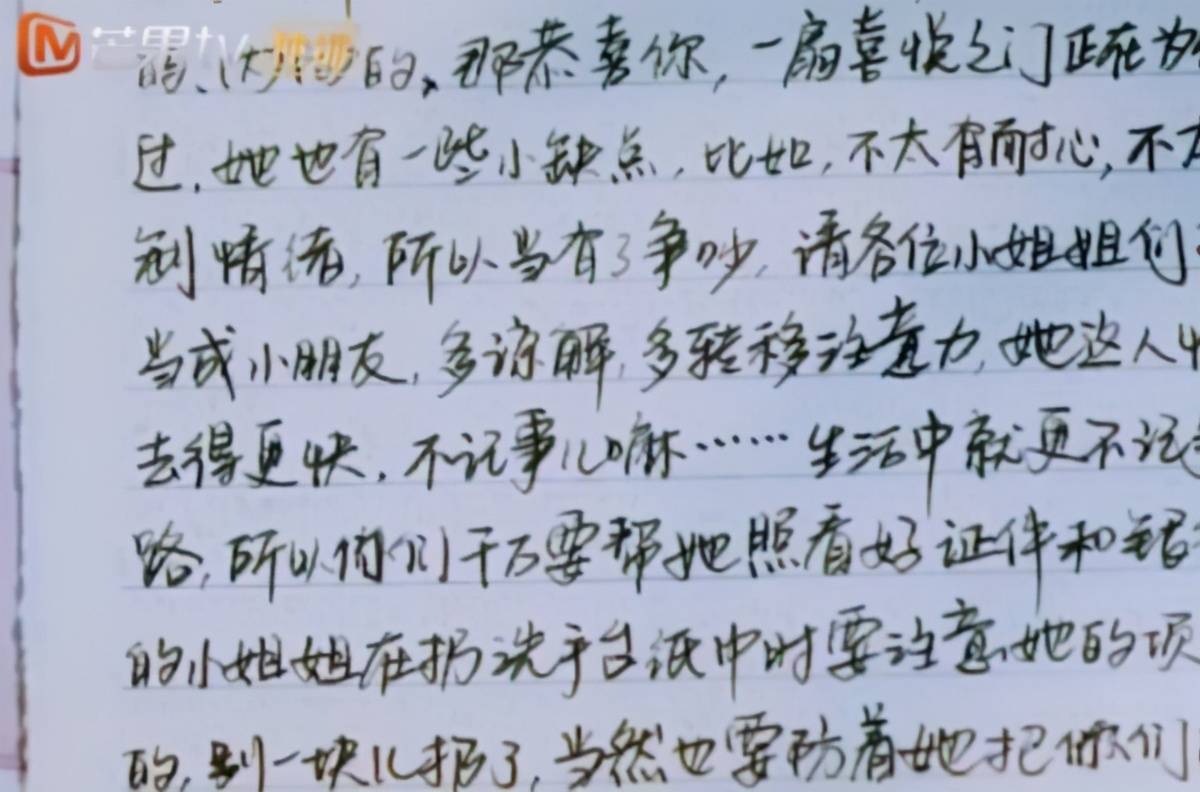 芒果tv 独播
的,那恭喜你,一扇喜悦之门正在为
过,她也有一些小缺点,比如,不太有耐心,不太
制情绪,所以当有了争吵,请各位小姐姐们
当成小朋友,多谅解,多转移注意力,她这人
去得更快,不记事儿嘛……生活中就更不记
路,所以你们千万要帮她照看好证件和
的小姐姐在扔洗手台纸巾时要注意,她的项
的,别一块儿扔了,当然也要防着她把你们